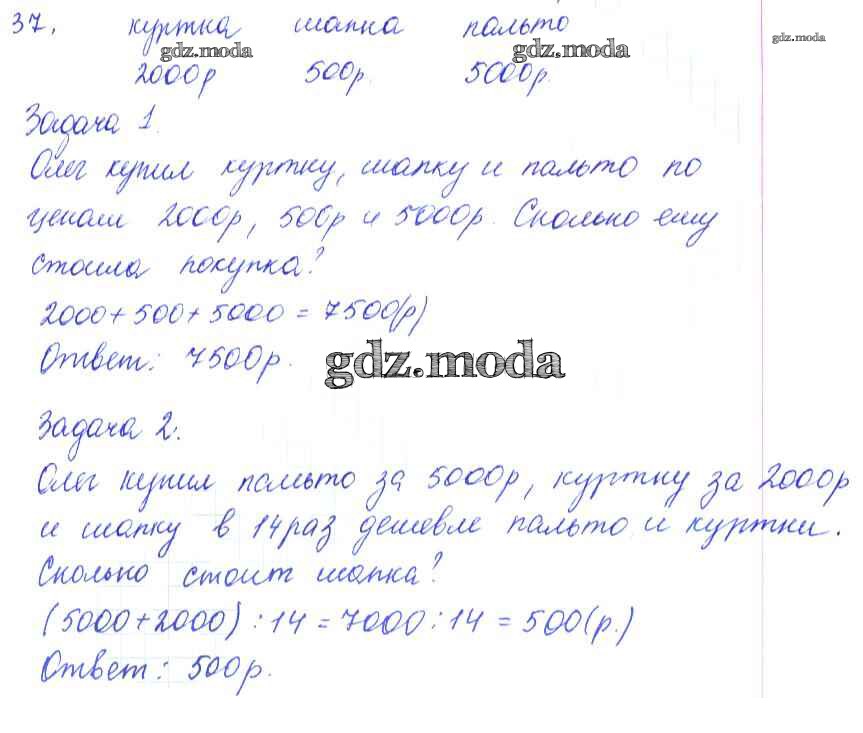 37. куртка шапка пальто
gdz.moda gdz.moda gdz.moda
2000р 500р. 5000р.
Задача 1.
Олег купил куртку, шапку и пальто по
ценам 2000р, 500р и 5000р. Сколько ему
стоила покупка?
2000+500+5000=7500(р)
Ответ: 7500р.
gdz.moda
Задача 2.
Олег купил пальто за 5000р, куртку за 2000р
и шапку в 14 раз дешевле пальто и куртки.
Сколько стоит шапка?
(5000+2000):14=7000:14=500(р.)
Ответ: 500р.